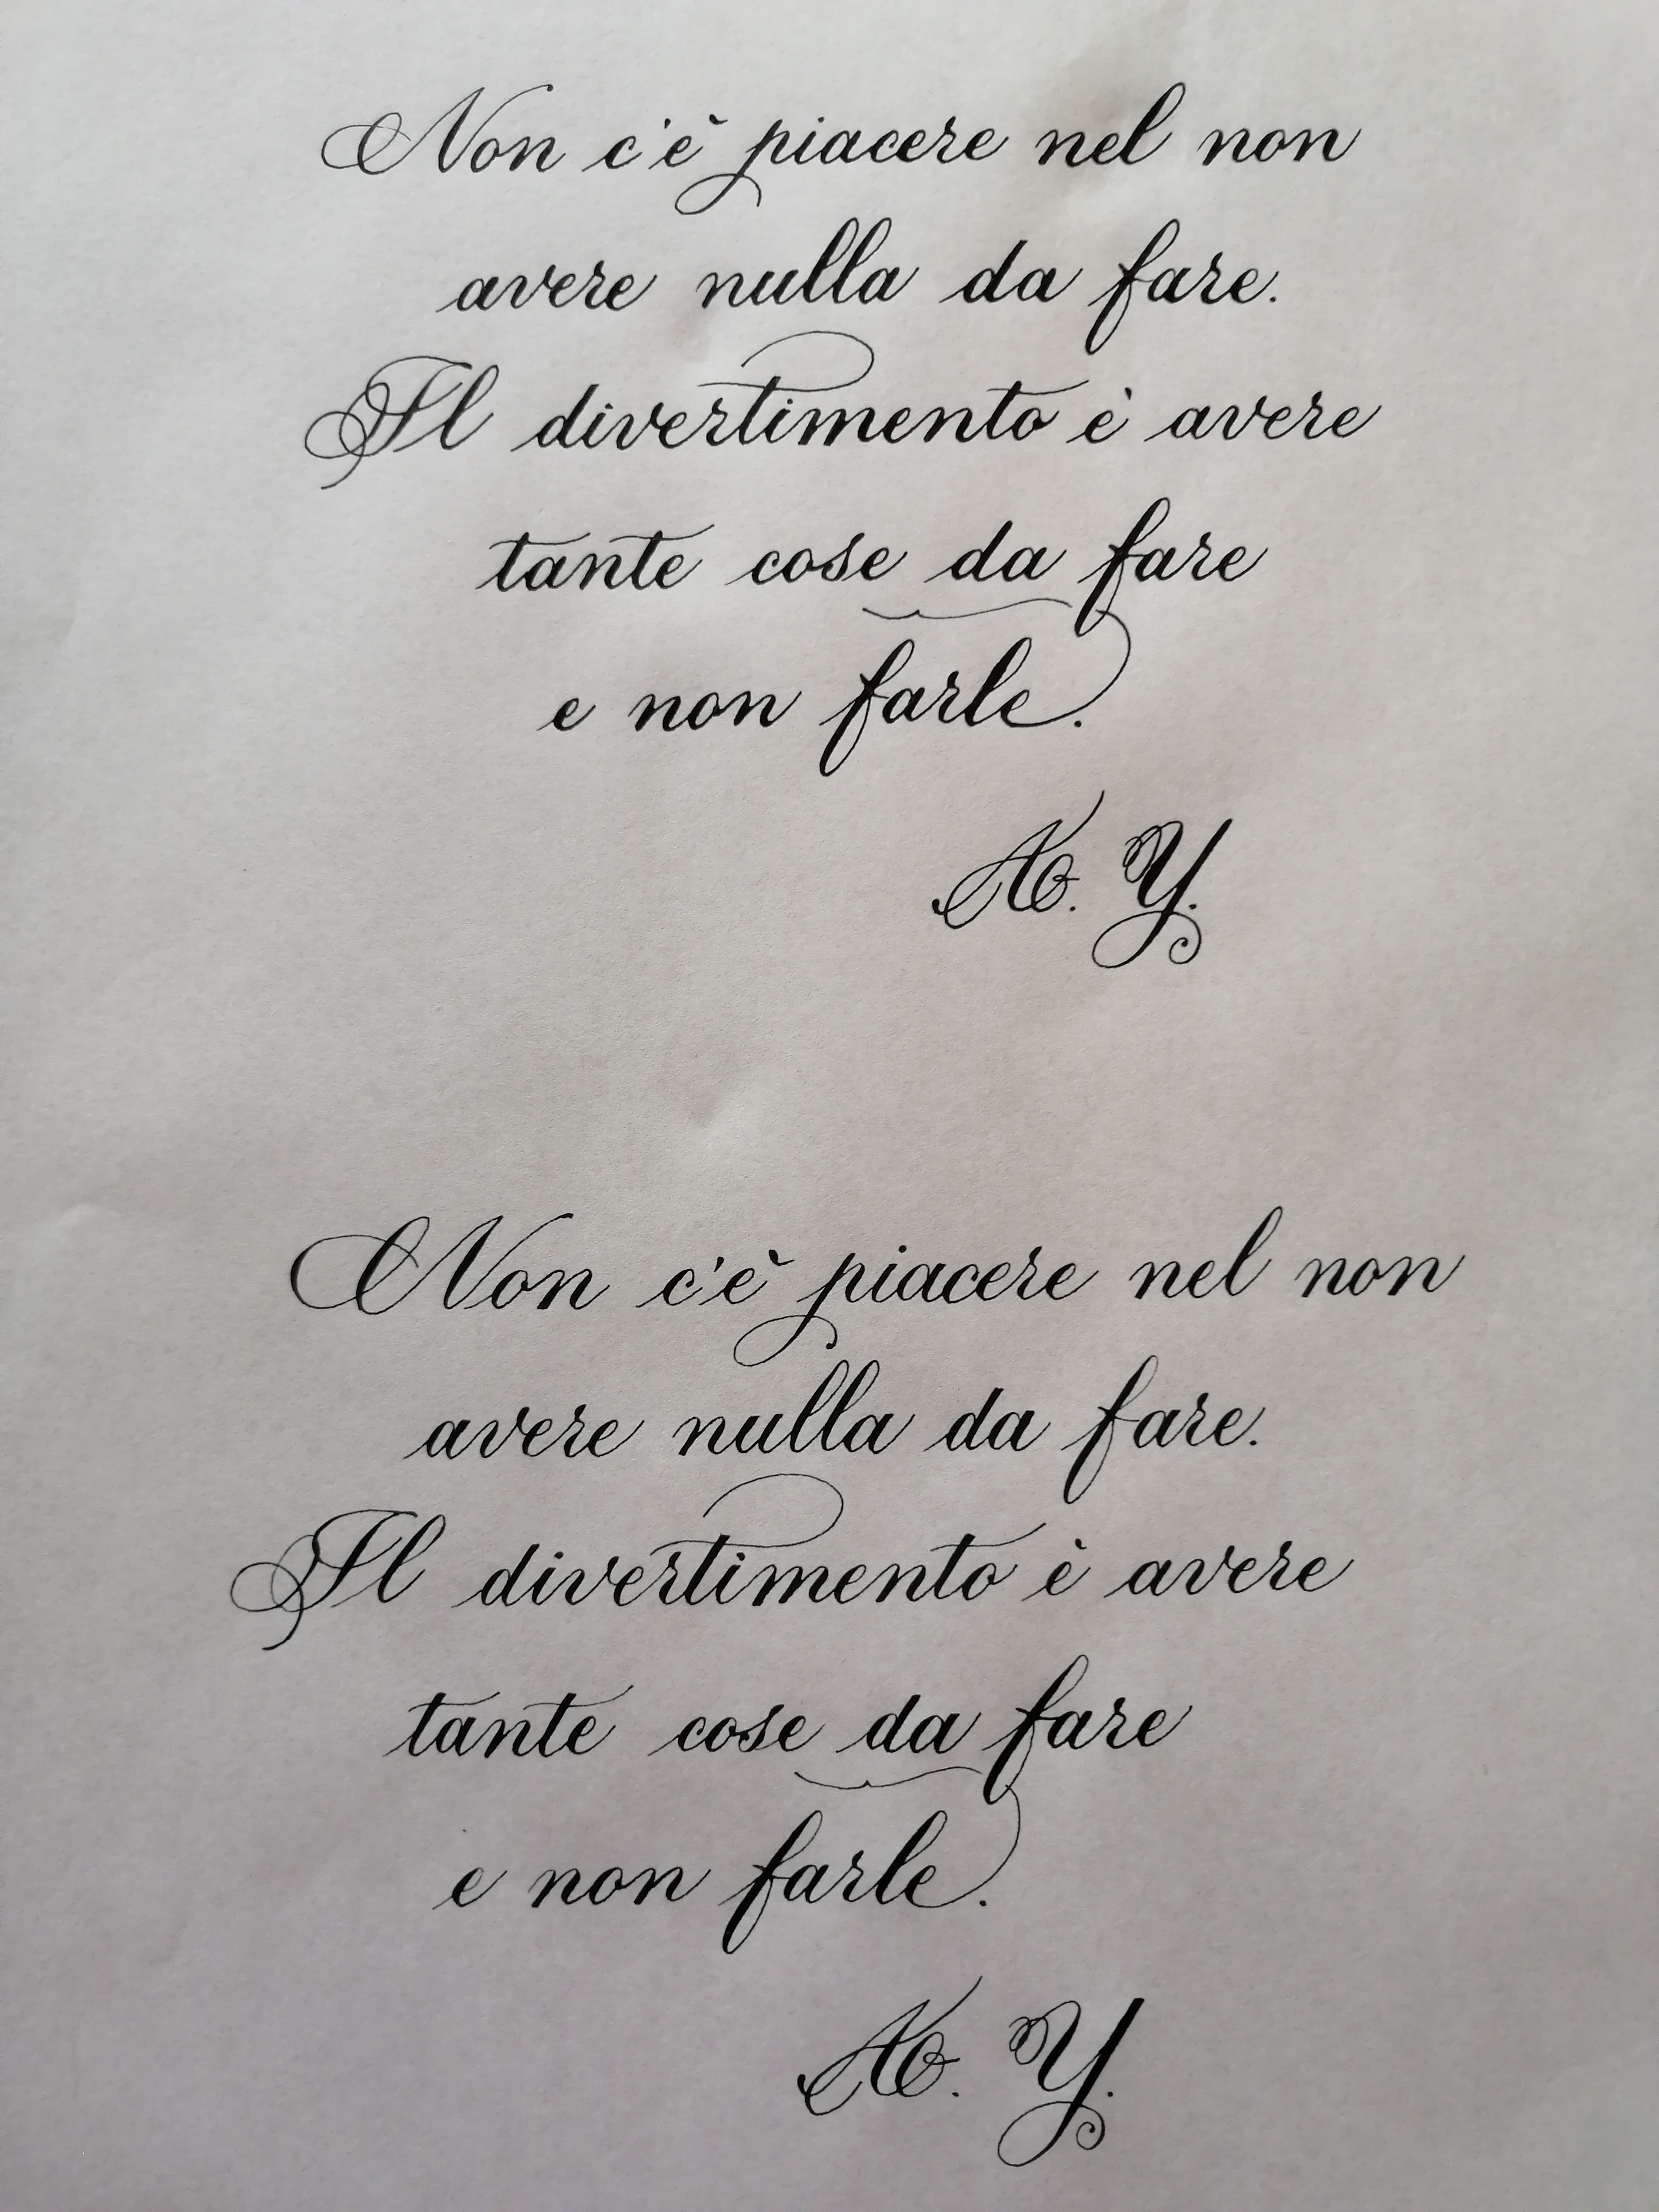 Non c'è piacere nel non
avere nulla da fare.
Il divertimento è avere
tante cose da fare
e non farle.
A. Y.
Non c'è piacere nel non
avere nulla da fare.
Il divertimento è avere
tante cose da fare
e non farle.
A. Y.